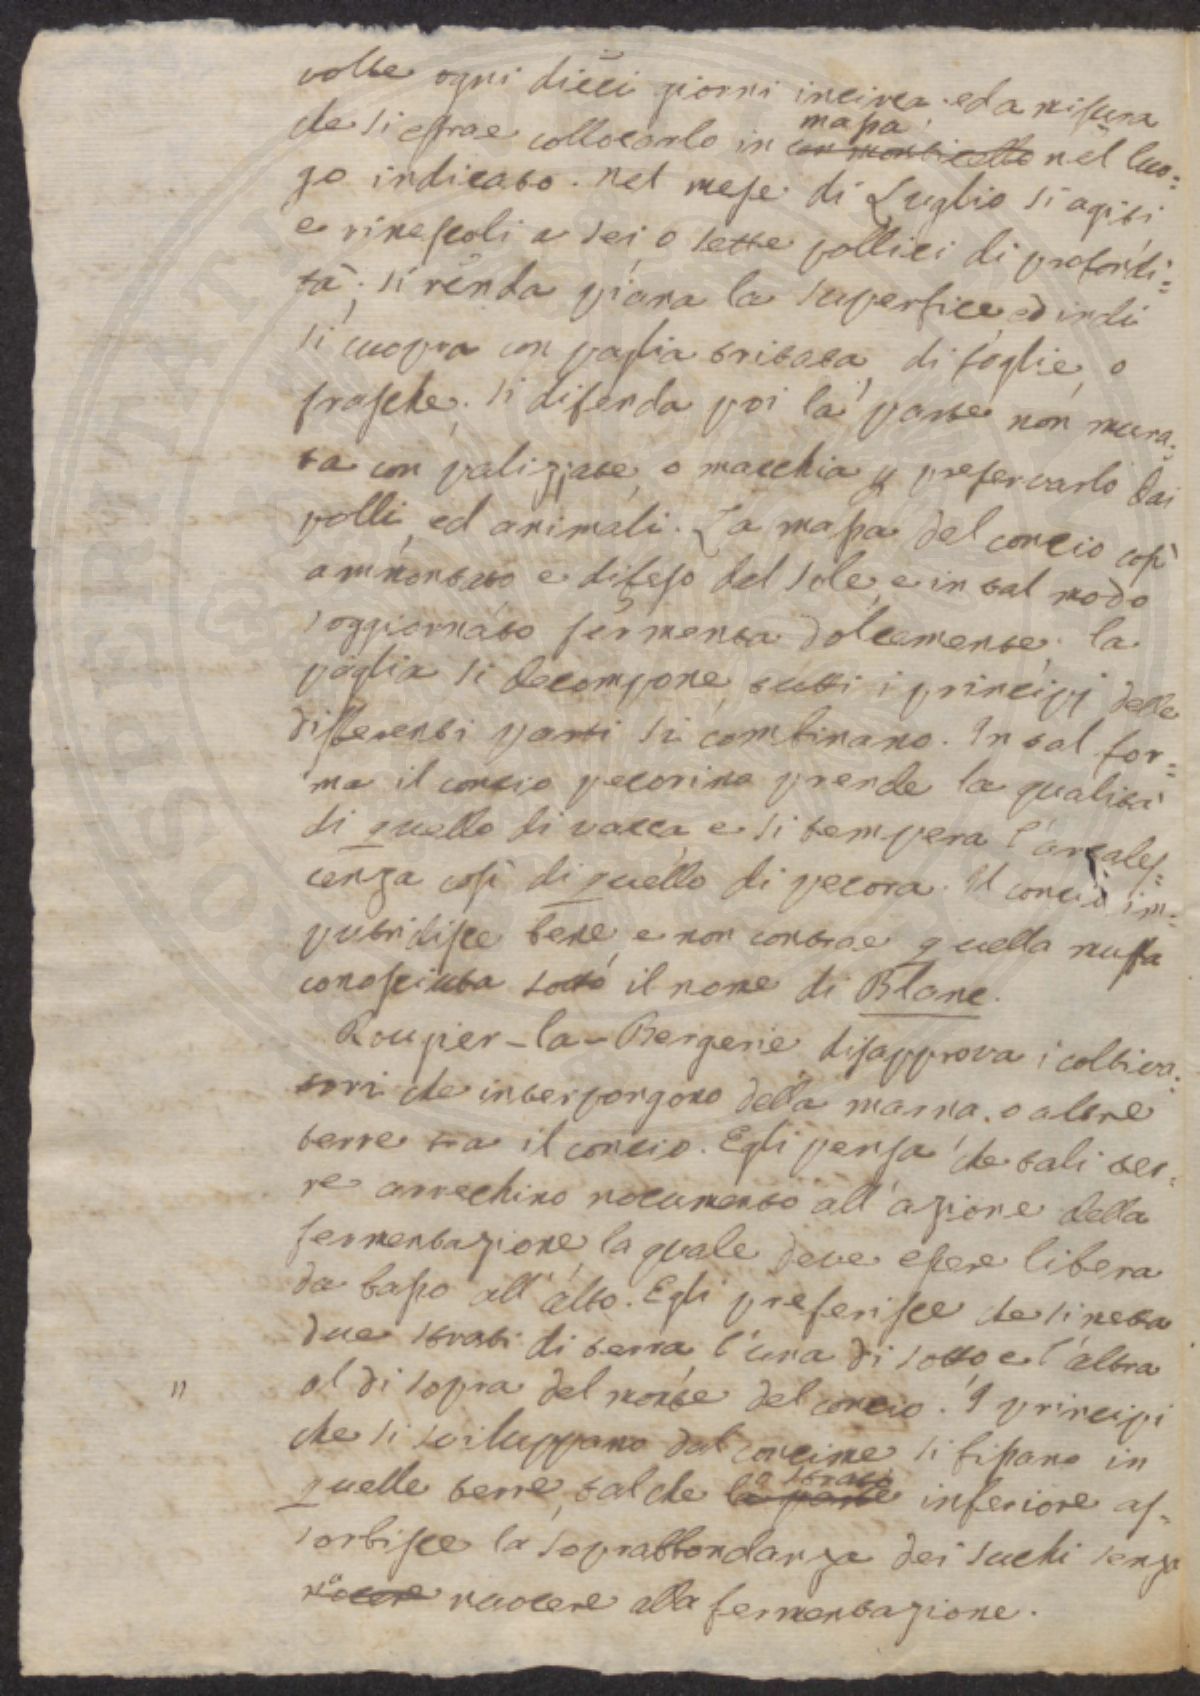 volte ogni dieci giorni incirca. ed a misura
che si estrae collocarlo in massa con monticello nel luo=
go indicato. Nel mese di Luglio si agiti
e rimescoli a sei o sette pollici di profondi=
tà; si renda piana la superficie, ed indi
si cuopra con paglia tritata, di foglie, o
frasche. Si difenda poi la parte non mura=
ta con palizzate, o macchia p preservarlo dai
polli, ed animali. La massa del concio così
ammontato e difeso dal sole, e in tal modo
soggiornato fermenta dolcemente: la
paglia si decompone tutti i principj delle
differenti parti si combinano. In tal for=
ma il concio pecorino prende la qualità
di quello di vacca e si tempera l'arcales=
cenza così di quello di pecora. Il concio im=
putridisce bene e non contrae quella muffa
conosciuta sotto il nome di Blanc.
Rougier-la-Bergerie disapprova i coltiva=
tori che interpongono della marna, o altre
terre tra il concio. Egli pensa che tali ter=
re arrechino nocumento all'azione della
fermentazione, la quale deve essere libera
da basso all'alto. Egli preferisce che si metta
due strati di terra l'una di sotto e l'altra
" al di sopra del monte del concio. I principi
che si sviluppano dal concime si fissano in
quelle terre, tal che la parte o strato inferiore as=
sorbisce la soprabbondanza dei suchi senza
nocere nuocere alla fermentazione.
SOSPERITATI